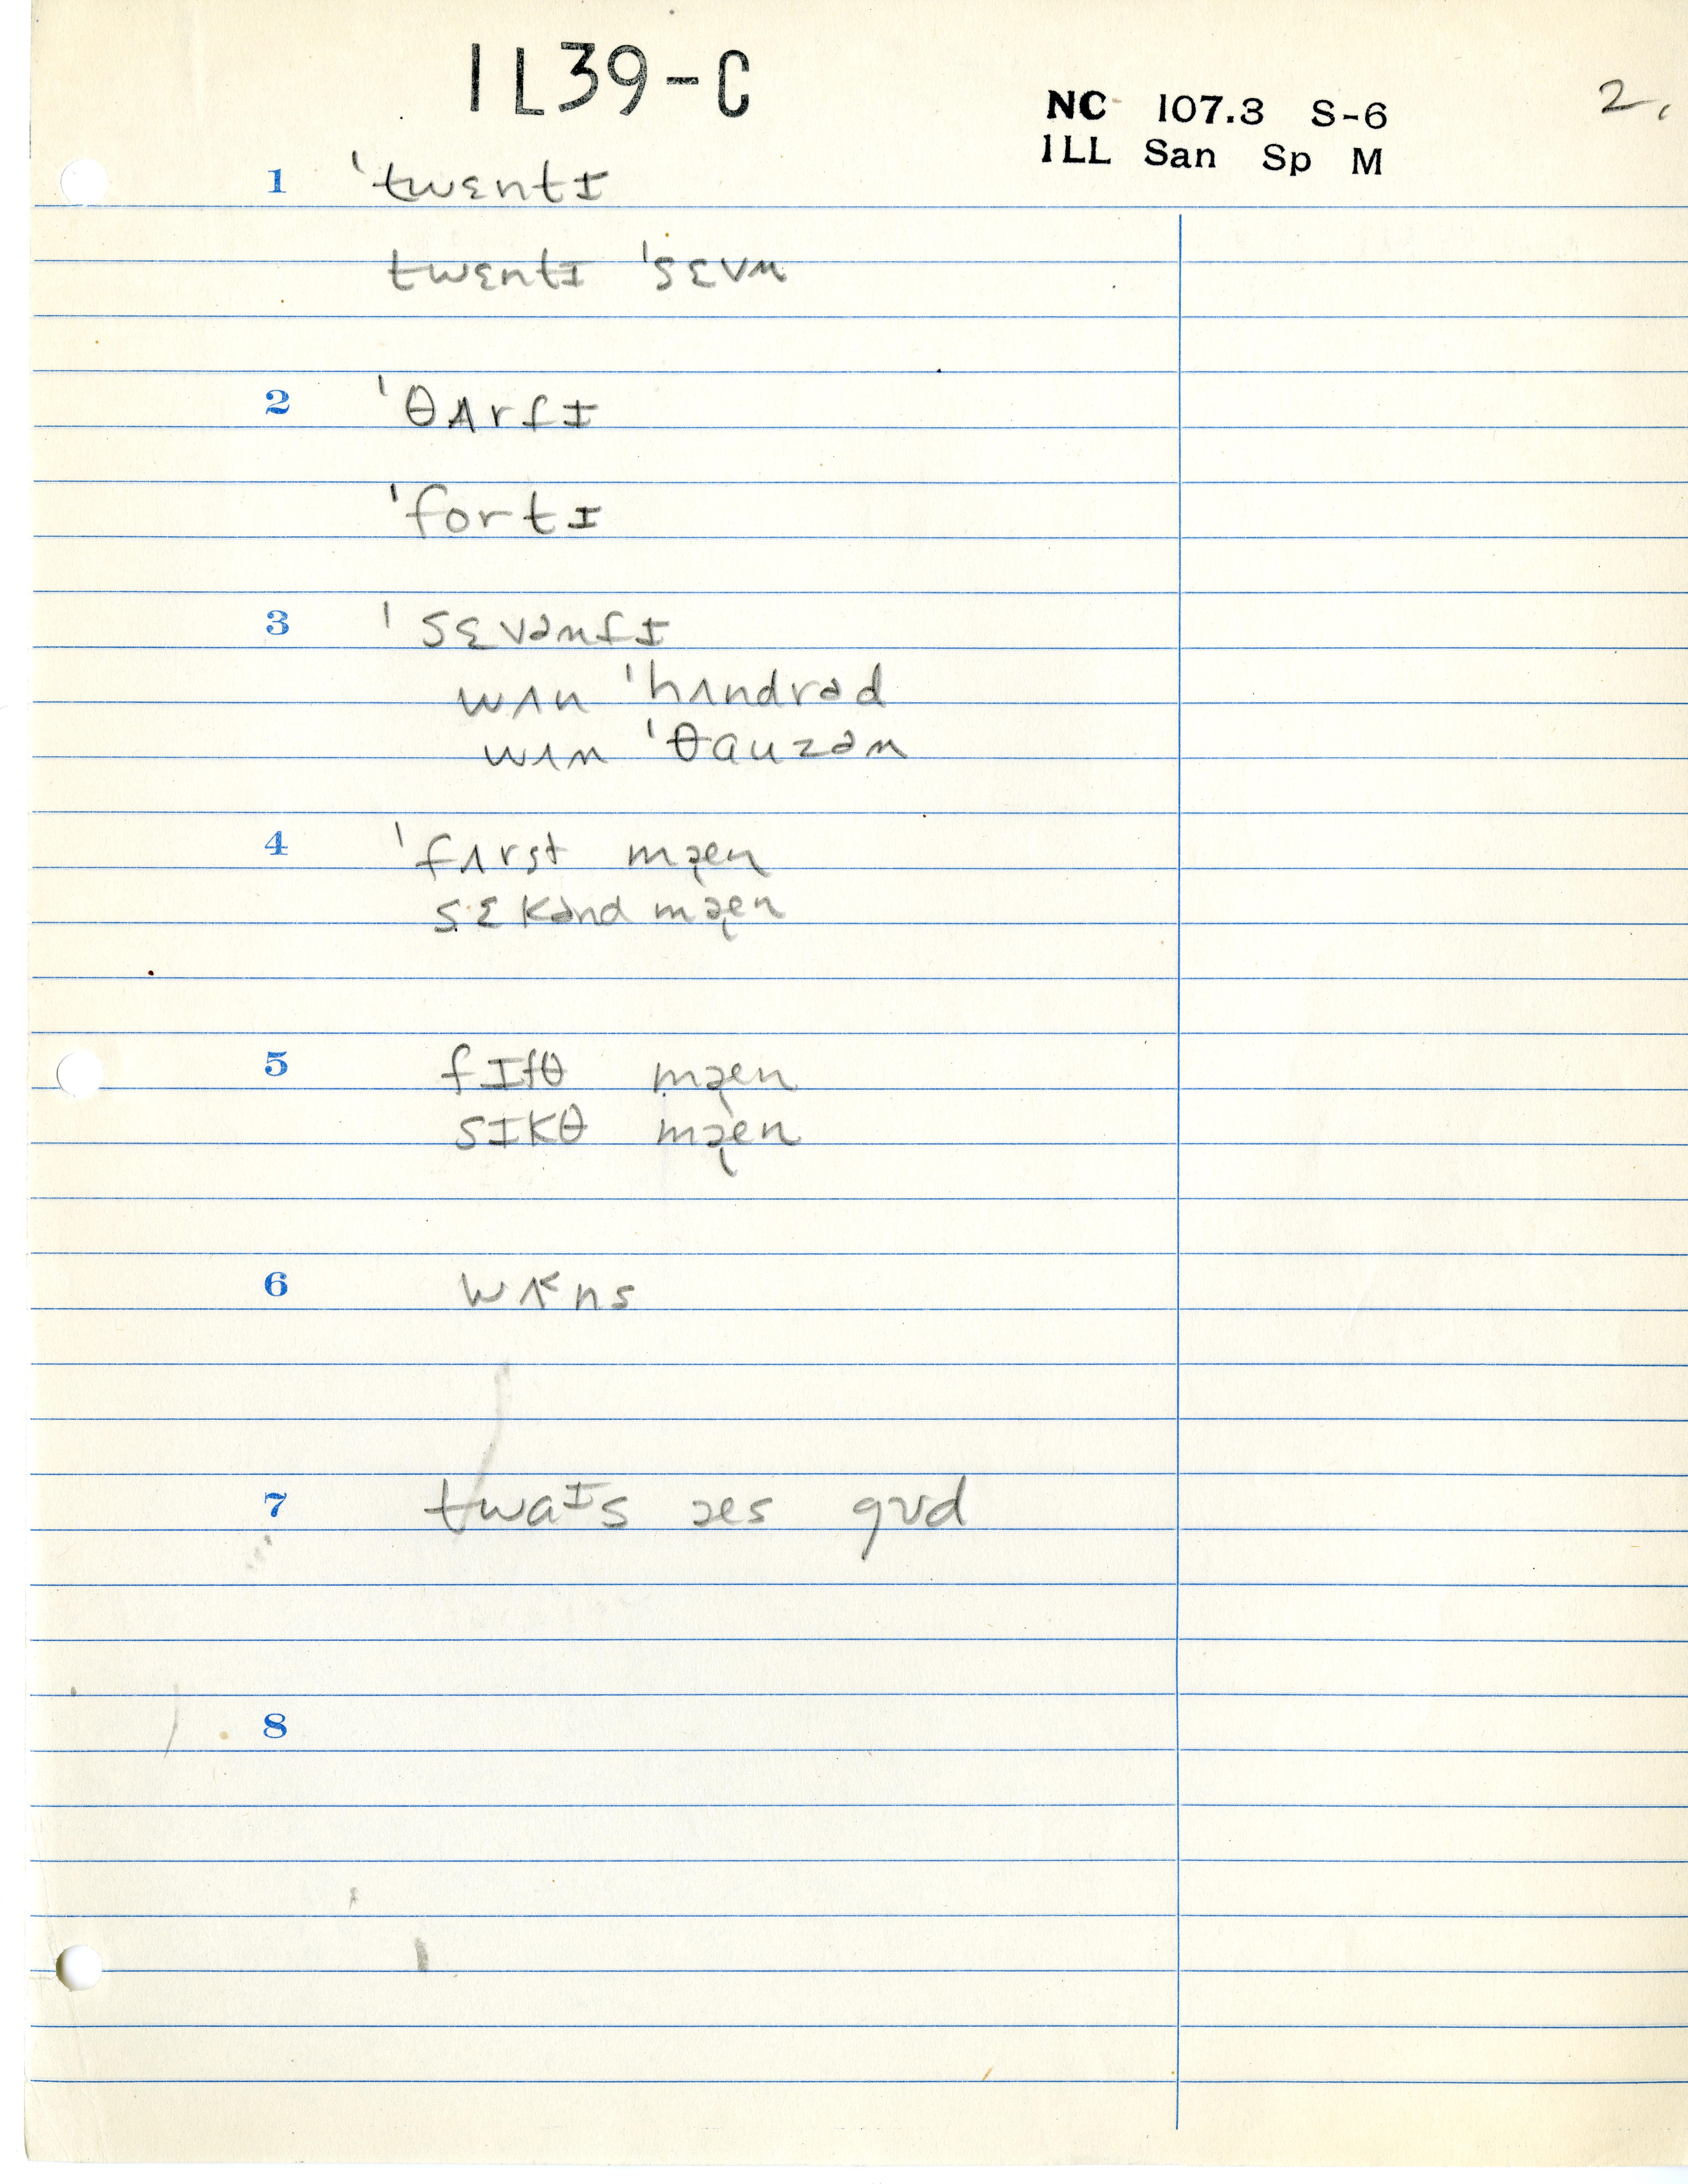 IL39-C
NC 107.3 S-6 2.
ILL San Sp M
1 ˈtwɛntɪ
twɛntɪ ˈsɛvn
2 ˈθʌrtɪ
ˈfortɪ
3 ˈsɛvəntɪ
wʌn ˈhʌndrəd
wʌn ˈθauzən
4 ˈfʌrst mæ̨n
sɛkənd mæ̨n
5 fɪfθ mæ̨n
sɪkθ mæ̨n
6 wʌ˂ns
7 twaɪs æs gʊd
8